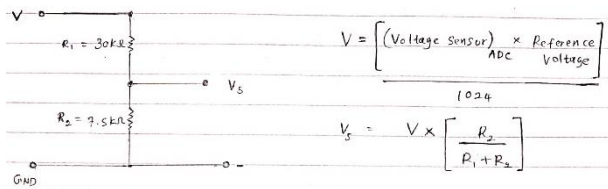 V
R₁ = 30kΩ
Vs
R₂ = 7.5kΩ
GND
-
V = [(Voltage Sensor)ADC × Reference Voltage]
1024
Vs = V × [R₂ / R₁ + R₂]